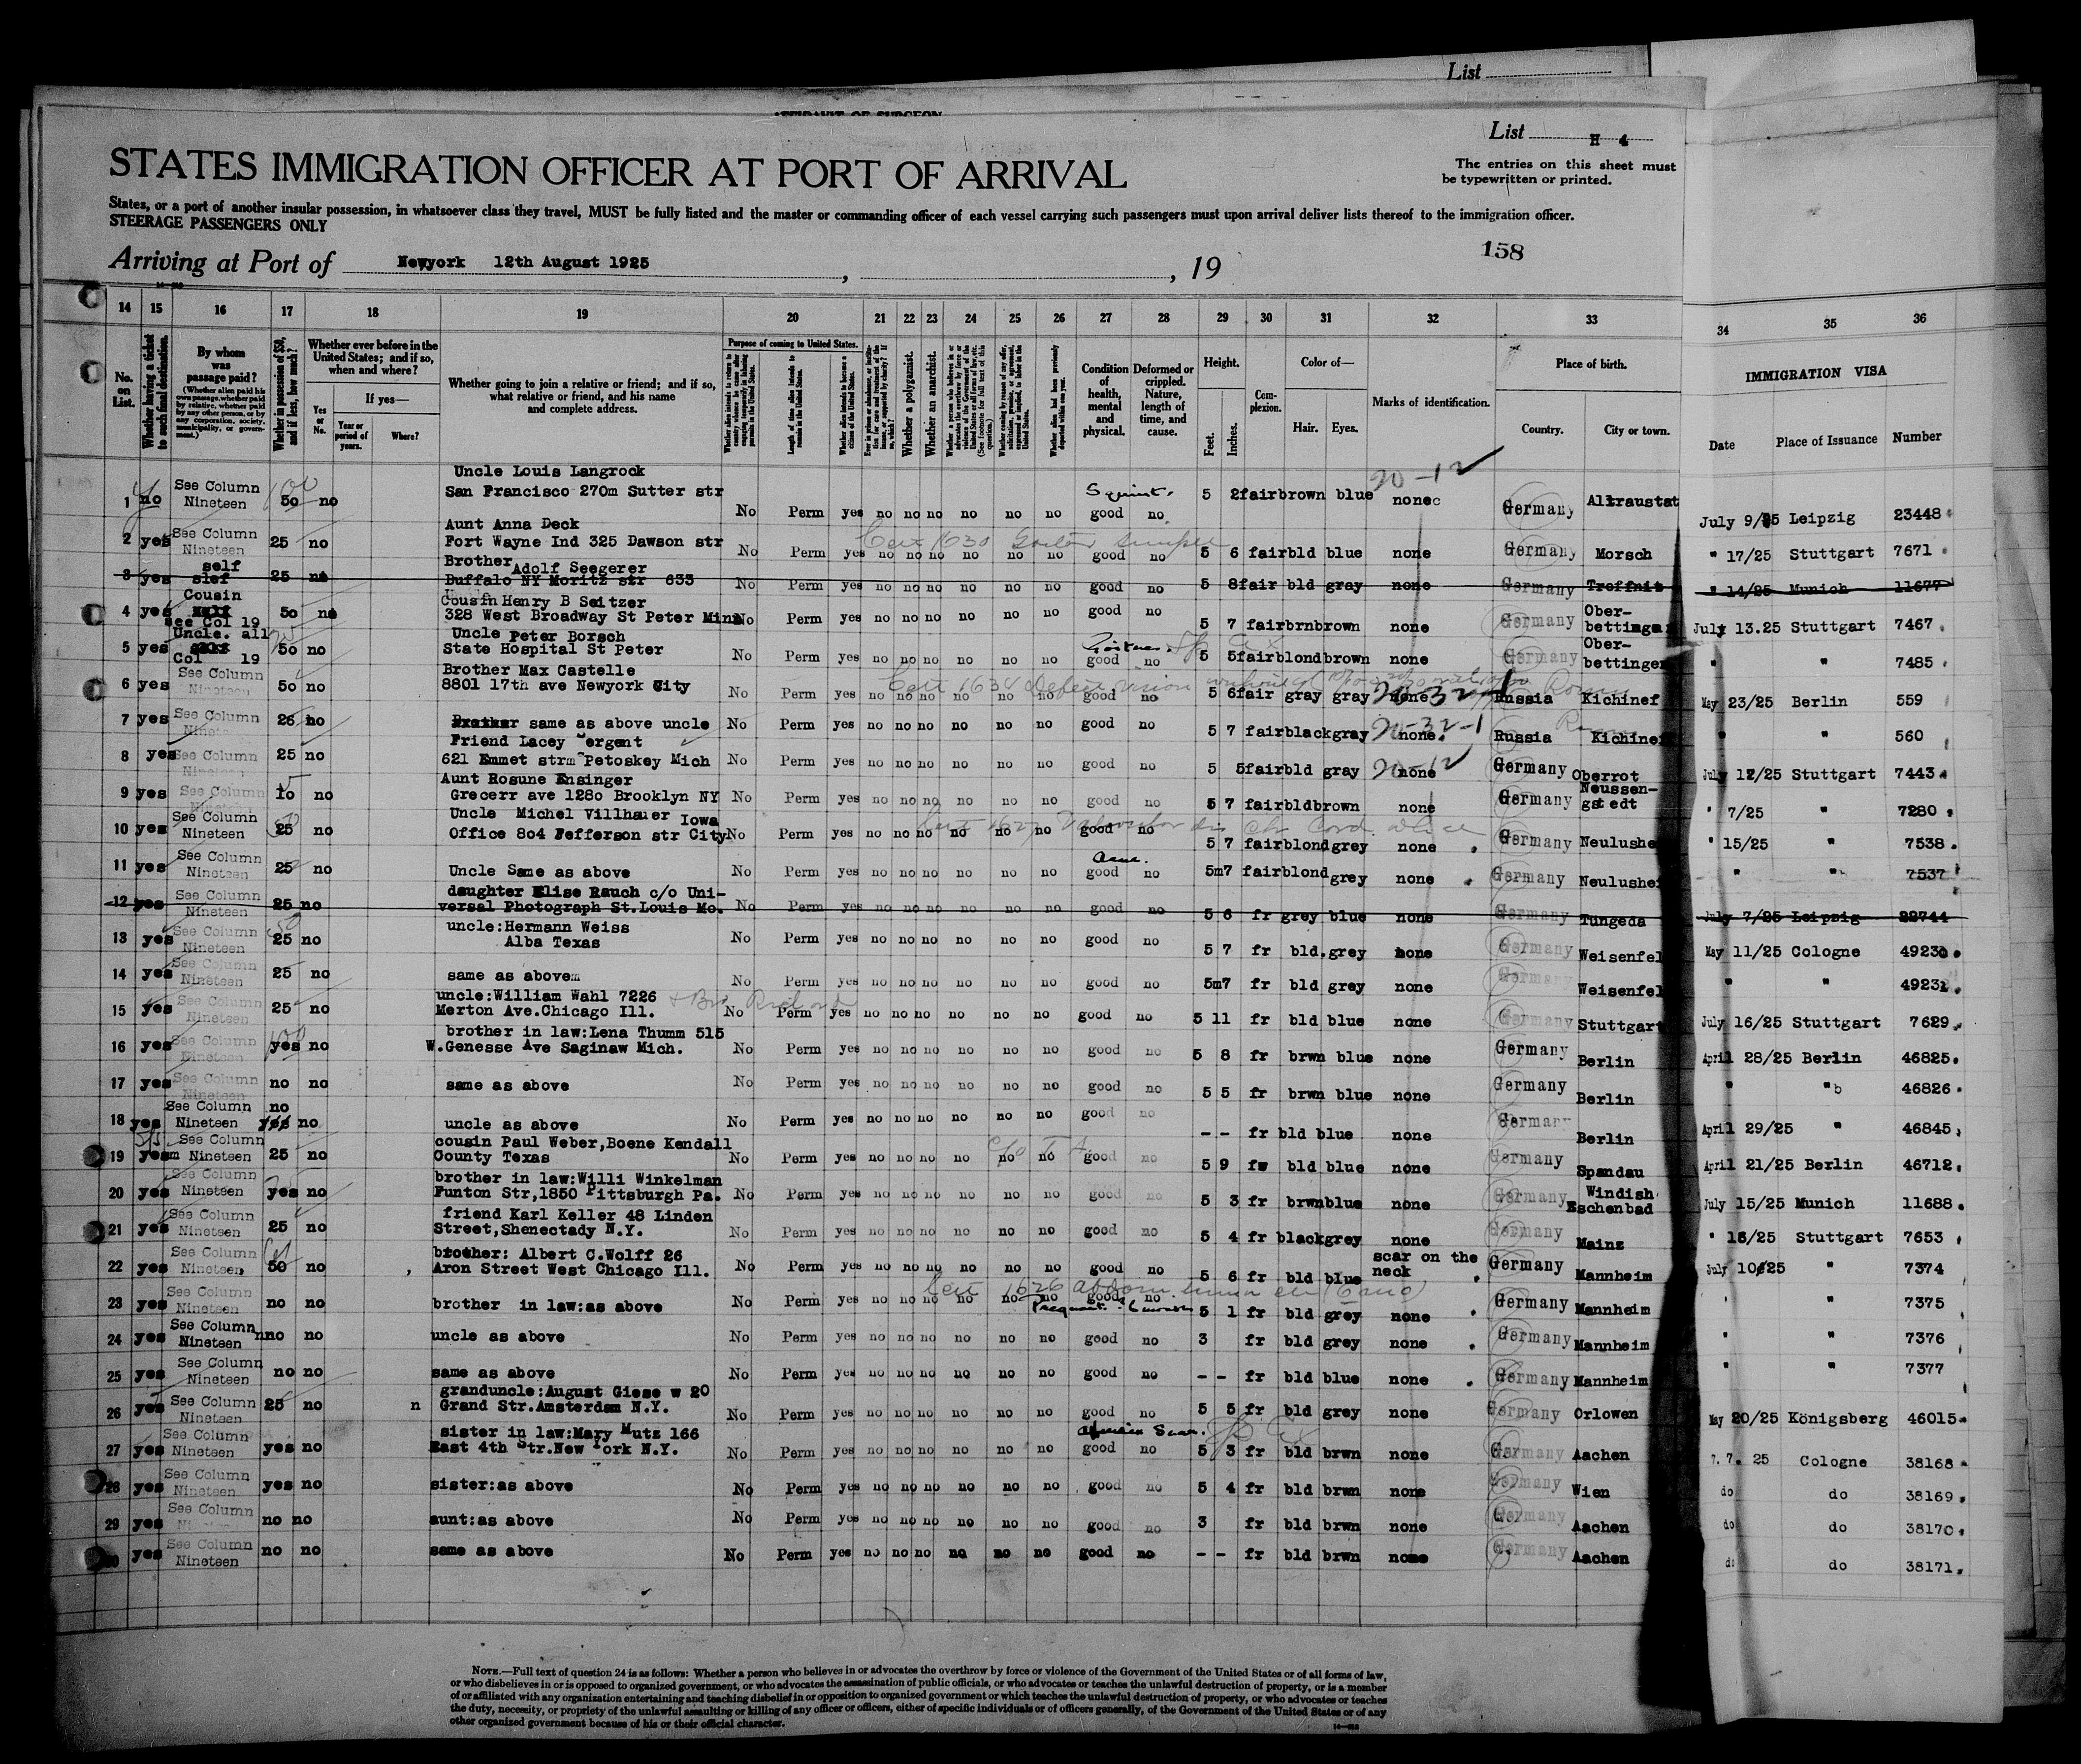 List
AFFIDAVIT OF SURGEON
List H 4
STATES IMMIGRATION OFFICER AT PORT OF ARRIVAL
The entries on this sheet must
be typewritten or printed.
States, or a port of another insular possession, in whatsoever class they travel, MUST be fully listed and the master or commanding officer of each vessel carrying such passengers must upon arrival deliver lists thereof to the immigration officer.
STEERAGE PASSENGERS ONLY
158
Arriving at Port of Newyork 12th August 1925, , 19
14 15 16 17 18 19 20 21 22 23 24 25 26 27 28 29 30 31 32 33 34 35 36
No. on List.
Whether having a ticket to such final destination.
By whom was passage paid?
(Whether alien paid his own passage, whether paid by relative, whether paid by any other person, or by any corporation, society, municipality, or government.)
Whether in possession of $50, and if less, how much?
Whether ever before in the United States; and if so, when and where?
Yes or No.
If yes—
Year or period of years.
Where?
Whether going to join a relative or friend; and if so, what relative or friend, and his name and complete address.
Purpose of coming to United States.
Length of time alien intends to remain in the United States.
Whether a polygamist.
Whether an anarchist.
Condition of health, mental and physical.
Deformed or crippled. Nature, length of time, and cause.
Height.
Feet.
Inches.
Complexion.
Color of—
Hair.
Eyes.
Marks of identification.
Place of birth.
Country.
City or town.
IMMIGRATION VISA
Date
Place of Issuance
Number
1 no See Column Nineteen 50 no Uncle Louis Langrock San Francisco 270m Sutter str No Perm yes no no no no no no Squint. good no 5 2 fair brown blue 20-12 none Germany Altraustat July 9/25 Leipzig 23448
2 yes See Column Nineteen 25 no Aunt Anna Deck Fort Wayne Ind 325 Dawson str No Perm yes no no no no no no good no 5 6 fair bld blue none Germany Morsch " 17/25 Stuttgart 7671
3 yes self 25 no Brother Adolf Seegerer Buffalo NY Moritz str 633 No Perm yes no no no no no no good no 5 8 fair bld gray none Germany " 14/25 Munich 11677
4 yes Cousin see Col 19 50 no Cousin Henry B Seitzer 328 West Broadway St Peter Minn No Perm yes no no no no no no good no 5 7 fair brn brown none Germany Ober-bettinge July 13.25 Stuttgart 7467
5 yes Uncle. all Col 19 50 no Uncle Peter Borsch State Hospital St Peter No Perm yes no no no no no no good no 5 5 fair blond brown none Germany Ober-bettingen " " 7485
6 yes See Column Nineteen 50 no Brother Max Castelle 8801 17th ave Newyork City No Perm yes no no no no no no good no 5 6 fair gray gray none Russia Kichinef May 23/25 Berlin 559
7 yes See Column 26 no same as above uncle No Perm yes no no no no no no good no 5 7 fair black gray 20-32-1 none Russia Kichinef " " 560
8 yes See Column 25 no Friend Lacey ergent 621 Emmet strm Petoskey Mich No Perm yes no no no no no no good no 5 5 fair bld gray 20-12 none Germany Oberrot July 12/25 Stuttgart 7443
9 yes See Column 10 no Aunt Rosune Ensinger Grecerr ave 1280 Brooklyn NY No Perm yes no no no no no no good no 5 7 fair bld brown none Germany Neussen-gstedt " 7/25 " 7280
10 yes See Column Nineteen 25 no Uncle Michel Villhauer Iowa Office 804 Jefferson str City No Perm yes no no no no no no good no 5 7 fair blond grey none Germany Neulushe " 15/25 " 7538
11 yes See Column Nineteen 25 no Uncle Same as above No Perm yes no no no no no no good no 5m7 fair blond grey none Germany Neulushei " " 7537
12 yes See Column Nineteen 25 no daughter Elise Rauch c/o Uni-versal Photograph St.Louis Mo. No Perm yes no no no no no no good no 5 6 fr grey blue none Germany Tungeda July 7/25 Leipzig 22744
13 yes See Column Nineteen 25 no uncle:Hermann Weiss Alba Texas No Perm yes no no no no no no good no 5 7 fr bld. grey none Germany Weisenfel May 11/25 Cologne 49230
14 yes See Column Nineteen 25 no same as above No Perm yes no no no no no no good no 5m7 fr bld grey none Germany Weisenfel " " 49231
15 yes See Column Nineteen 25 no uncle:William Wahl 7226 Merton Ave.Chicago Ill. No Perm yes no no no no no no good no 5 11 fr bld blue none Germany Stuttgart July 16/25 Stuttgart 7629
16 yes See Column Nineteen yes no brother in law:Lena Thumm 515 W.Genesse Ave Saginaw Mich. No Perm yes no no no no no no good no 5 8 fr brwn blue none Germany Berlin April 28/25 Berlin 46825
17 yes See Column Nineteen no no same as above No Perm yes no no no no no no good no 5 5 fr brwn blue none Germany Berlin " " 46826
18 yes See Column Nineteen no no uncle as above No Perm yes no no no no no no good no - - fr bld blue none Germany Berlin April 29/25 " 46845
19 yes See Column Nineteen 25 no cousin Paul Weber,Boene Kendall County Texas No Perm yes no no no no no no good no 5 9 fr bld blue none Germany Spandau April 21/25 Berlin 46712
20 yes See Column Nineteen yes no brother in law:Willi Winkelman Funton Str,1850 Pittsburgh Pa. No Perm yes no no no no no no good no 5 3 fr brwn blue none Germany Windish Eschenbad July 15/25 Munich 11688
21 yes See Column Nineteen 25 no friend Karl Keller 48 Linden Street,Shenectady N.Y. No Perm yes no no no no no no good no 5 4 fr black grey none Germany Mainz " 16/25 Stuttgart 7653
22 yes See Column Nineteen 50 no brother: Albert C.Wolff 26 Aron Street West Chicago Ill. No Perm yes no no no no no no good no 5 6 fr bld blue scar on the neck Germany Mannheim July 10/25 " 7374
23 yes See Column Nineteen no no brother in law:as above No Perm yes no no no no no no good no 5 1 fr bld grey none Germany Mannheim " " 7375
24 yes See Column Nineteen no no uncle as above No Perm yes no no no no no no good no 3 fr bld grey none Germany Mannheim " " 7376
25 yes See Column Nineteen no no same as above No Perm yes no no no no no no good no - - fr bld blue none Germany Mannheim " " 7377
26 yes See Column Nineteen 25 no n granduncle:August Giese w 20 Grand Str.Amsterdam N.Y. No Perm yes no no no no no no good no 5 5 fr bld grey none Germany Orlowen May 20/25 Königsberg 46015
27 yes See Column Nineteen yes no sister in law:Mary Mutz 166 East 4th Str.New York N.Y. No Perm yes no no no no no no good no 5 3 fr bld brwn none Germany Aachen 7. 7. 25 Cologne 38168
28 yes See Column Nineteen yes no sister:as above No Perm yes no no no no no no good no 5 4 fr bld brwn none Germany Wien do do 38169
29 yes See Column no no aunt:as above No Perm yes no no no no no no good no 3 fr bld brwn none Germany Aachen do do 38170
30 yes See Column Nineteen no no same as above No Perm yes no no no no no no good no - - fr bld brwn none Germany Aachen do do 38171
NOTE.—Full text of question 24 is as follows: Whether a person who believes in or advocates the overthrow by force or violence of the Government of the United States or of all forms of law,
or who disbelieves in or is opposed to organized government, or who advocates the assassination of public officials, or who advocates or teaches the unlawful destruction of property, or is a member
of or affiliated with any organization entertaining and teaching disbelief in or opposition to organized government or which teaches the unlawful destruction of property, or who advocates or teaches
the duty, necessity, or propriety of the unlawful assaulting or killing of any officer or officers, either of specific individuals or of officers generally, of the Government of the United States or of any
other organized government because of his or their official character.